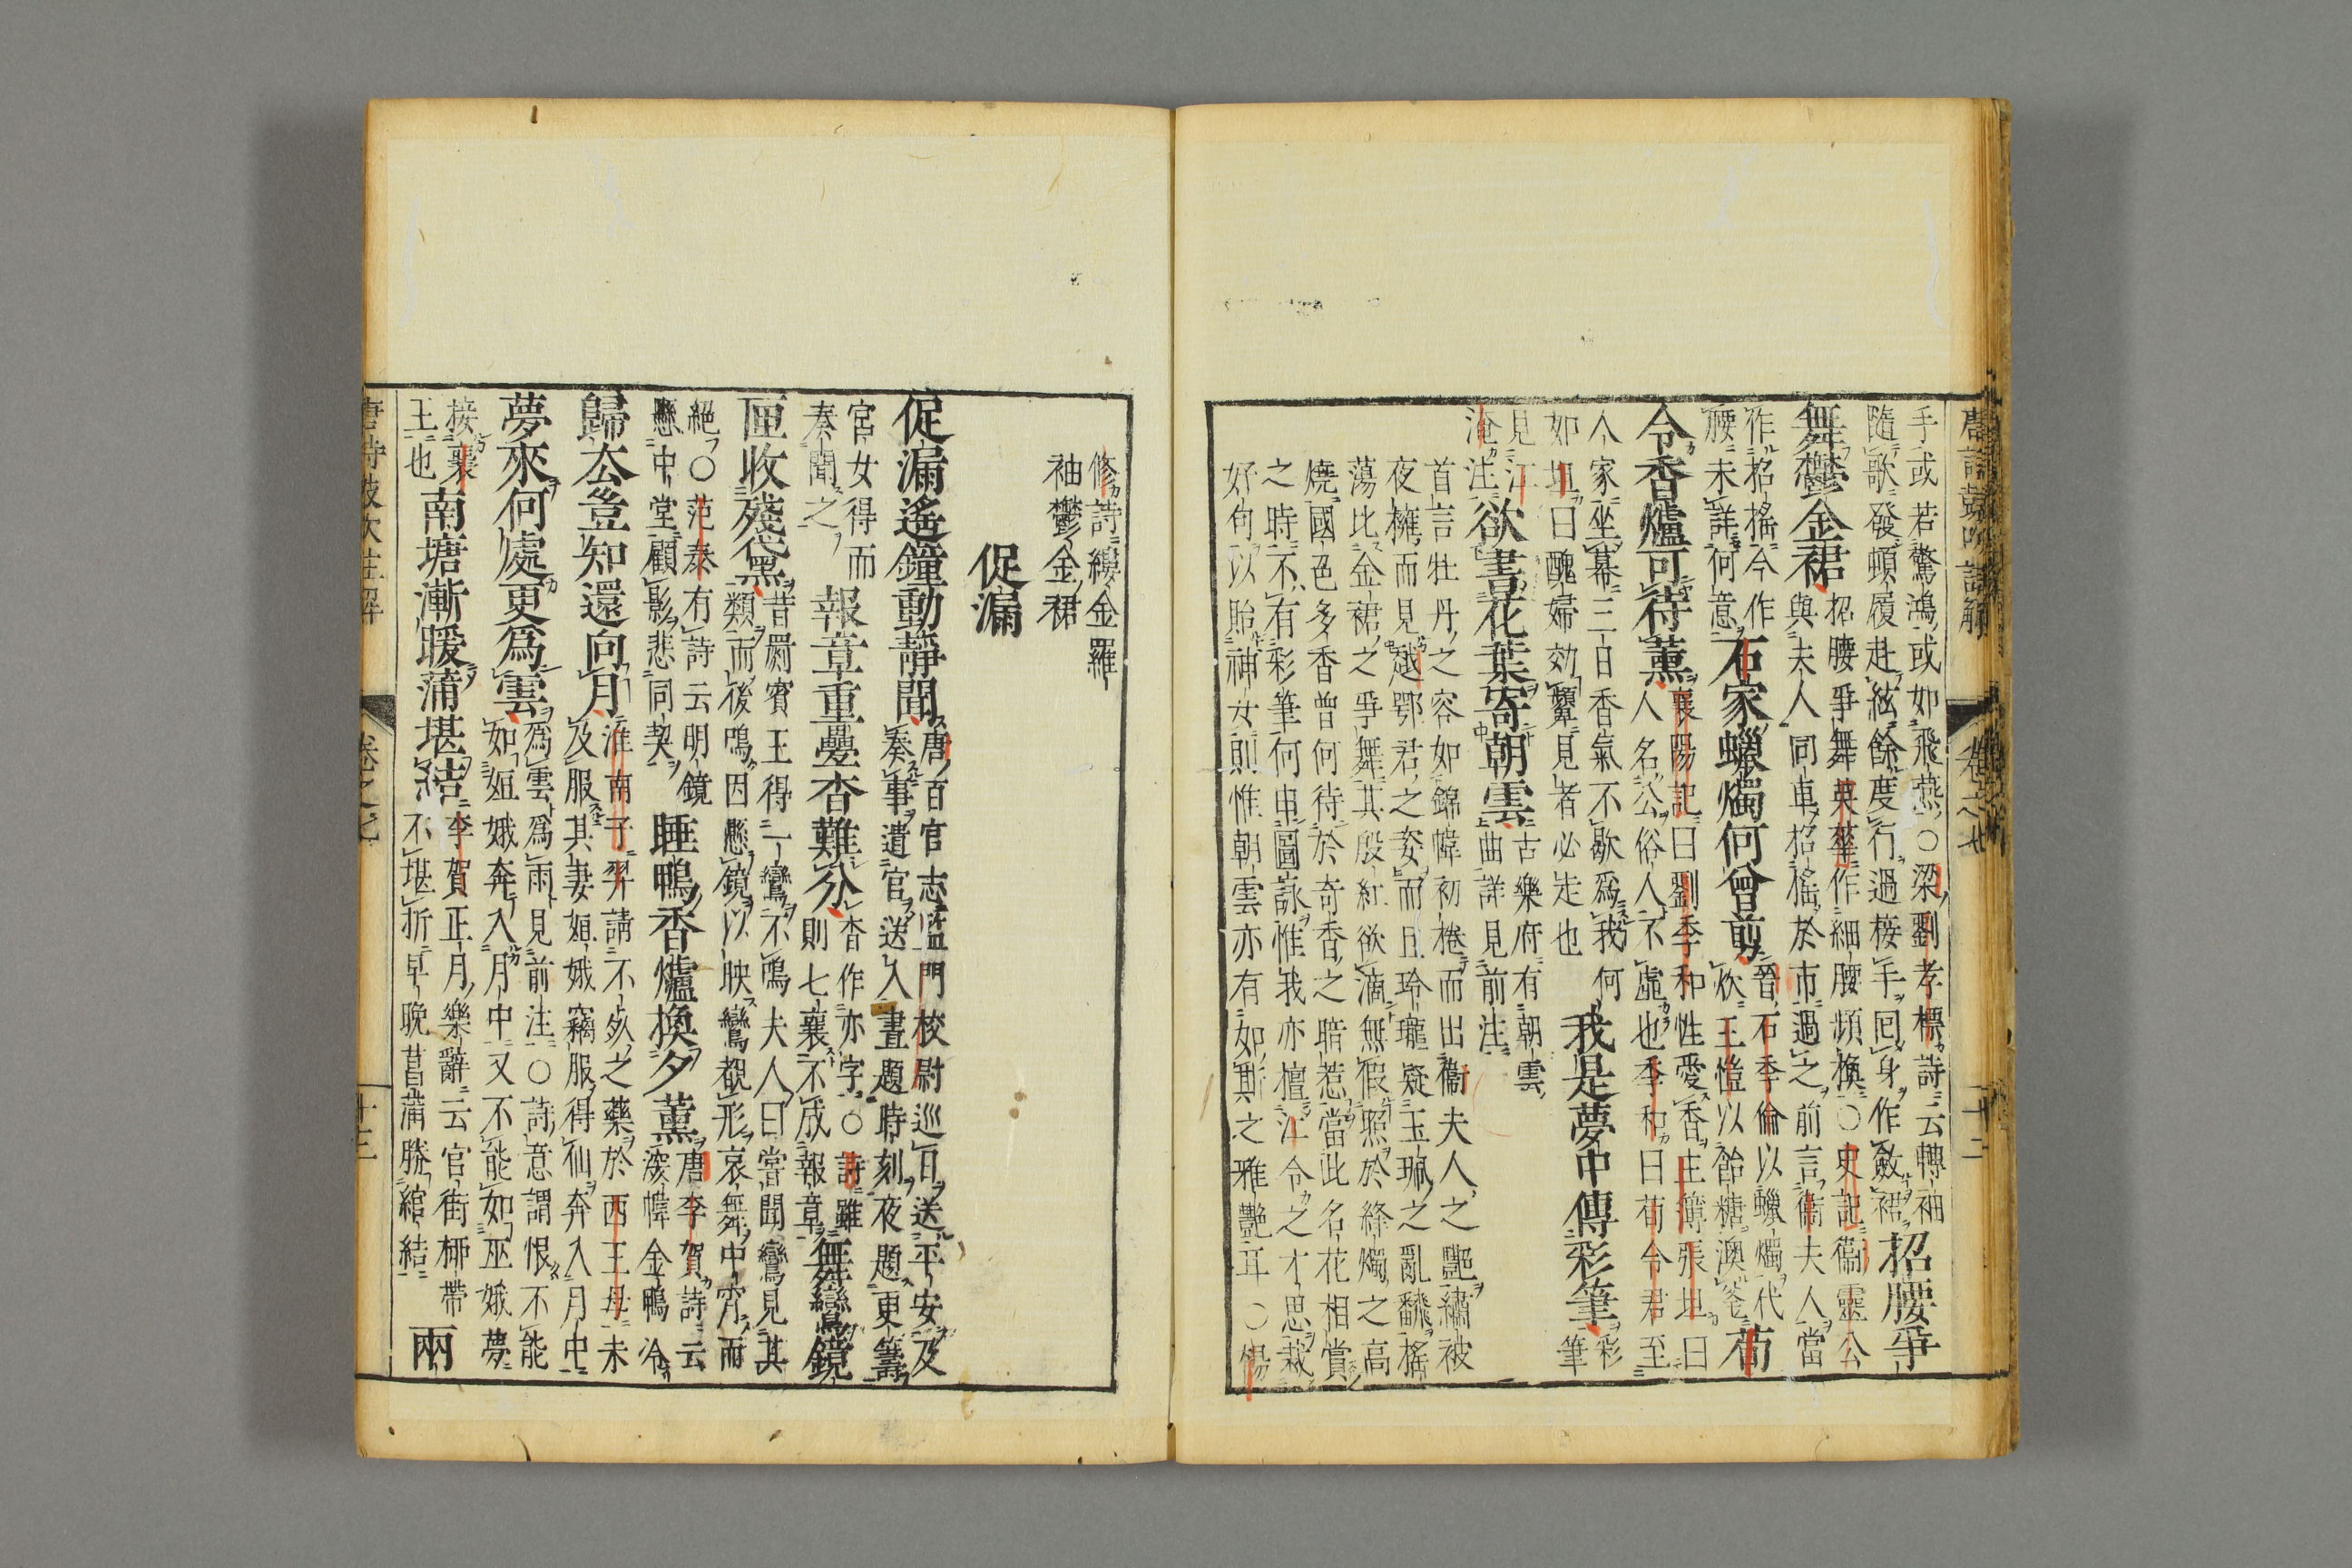 手或若驚鴻或如飛燕○梁劉孝標詩云轉袖
隨歌發頓履赴絃餘度行過接手囘身作斂襟
招腰爭
舞鬱金裙
招腰爭舞英華作細腰頻換○史記衞靈公
與夫人同車招搖於市過之前言衞夫人當
作招搖今作
腰未詳何意
石家蠟燭何曾剪
晉石季倫以蠟燭代
炊王愷以飴糖澳釜
荀
令香爐可待薰
襄陽記曰劉季和性愛香主簿張坦曰
人名公俗人不虛也季和曰荀令君至
人家坐幕三日香氣不歇爲我何
如坦曰醜婦効顰見者必走也
我是夢中傳彩筆
彩
筆
見江
淹注
欲書花葉寄朝雲
古樂府有朝雲
曲詳見前注
首言牡丹之容如錦幃初捲而出衞夫人之艷繡被
夜擁而見越鄂君之姿而且玲瓏疑玉珮之亂飜搖
蕩比金裙之爭舞其殷紅欲滴無假照於絳燭之高
燒國色多香曾何待於奇香之暗惹當此名花相賞
之時不有彩筆何由圖詠惟我亦檀江令之才思裁
好句以貽神女則惟朝雲亦有如斯之雅艷耳○楊
修詩縷金羅
袖鬱金裙
促漏
促漏遙鐘動靜聞
唐百官志監門校尉巡日送平安及
奏事遣官送入晝題時刻夜題更籌
官女得而
奏聞之
報章重疊杳難分
杳作亦字○詩雖
則七襄不成報章
舞鸞鏡
匣收殘黛
昔罽賓王得一鸞不鳴夫人曰嘗聞鸞見其
類而後鳴因懸鏡以映鸞覩形哀舞中宵而
絕○范泰有詩云明鏡
懸中堂顧影悲同契
睡鴨香爐換夕薰
唐李賀詩云
深幃金鴨冷
歸去豈知還向月
淮南子羿請不死之藥於西王母未
及服其妻姮娥竊服得仙奔入月中
夢來何處更爲雲
爲雲爲雨見前注○詩意謂恨不能
如姮娥奔入月中又不能如巫娥夢
接襄
王也
南塘漸暖蒲堪結
李賀正月樂辭云官街柳帶
不堪折早晚菖蒲勝綰結
兩
卷之七
十三